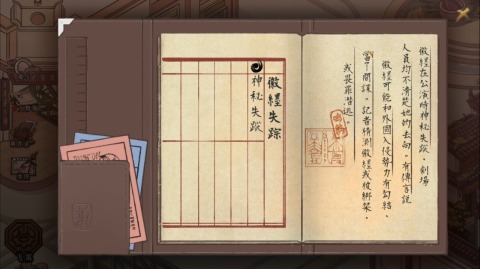 徽經在公演時神秘失蹤。劇場
人員均不清楚她的去向。有傳言說
徽經可能和外國入侵勢力有勾結，
當了間諜。記者猜測徽經或被綁架，
或畏罪潛逃。
徽經失踪
神秘失蹤